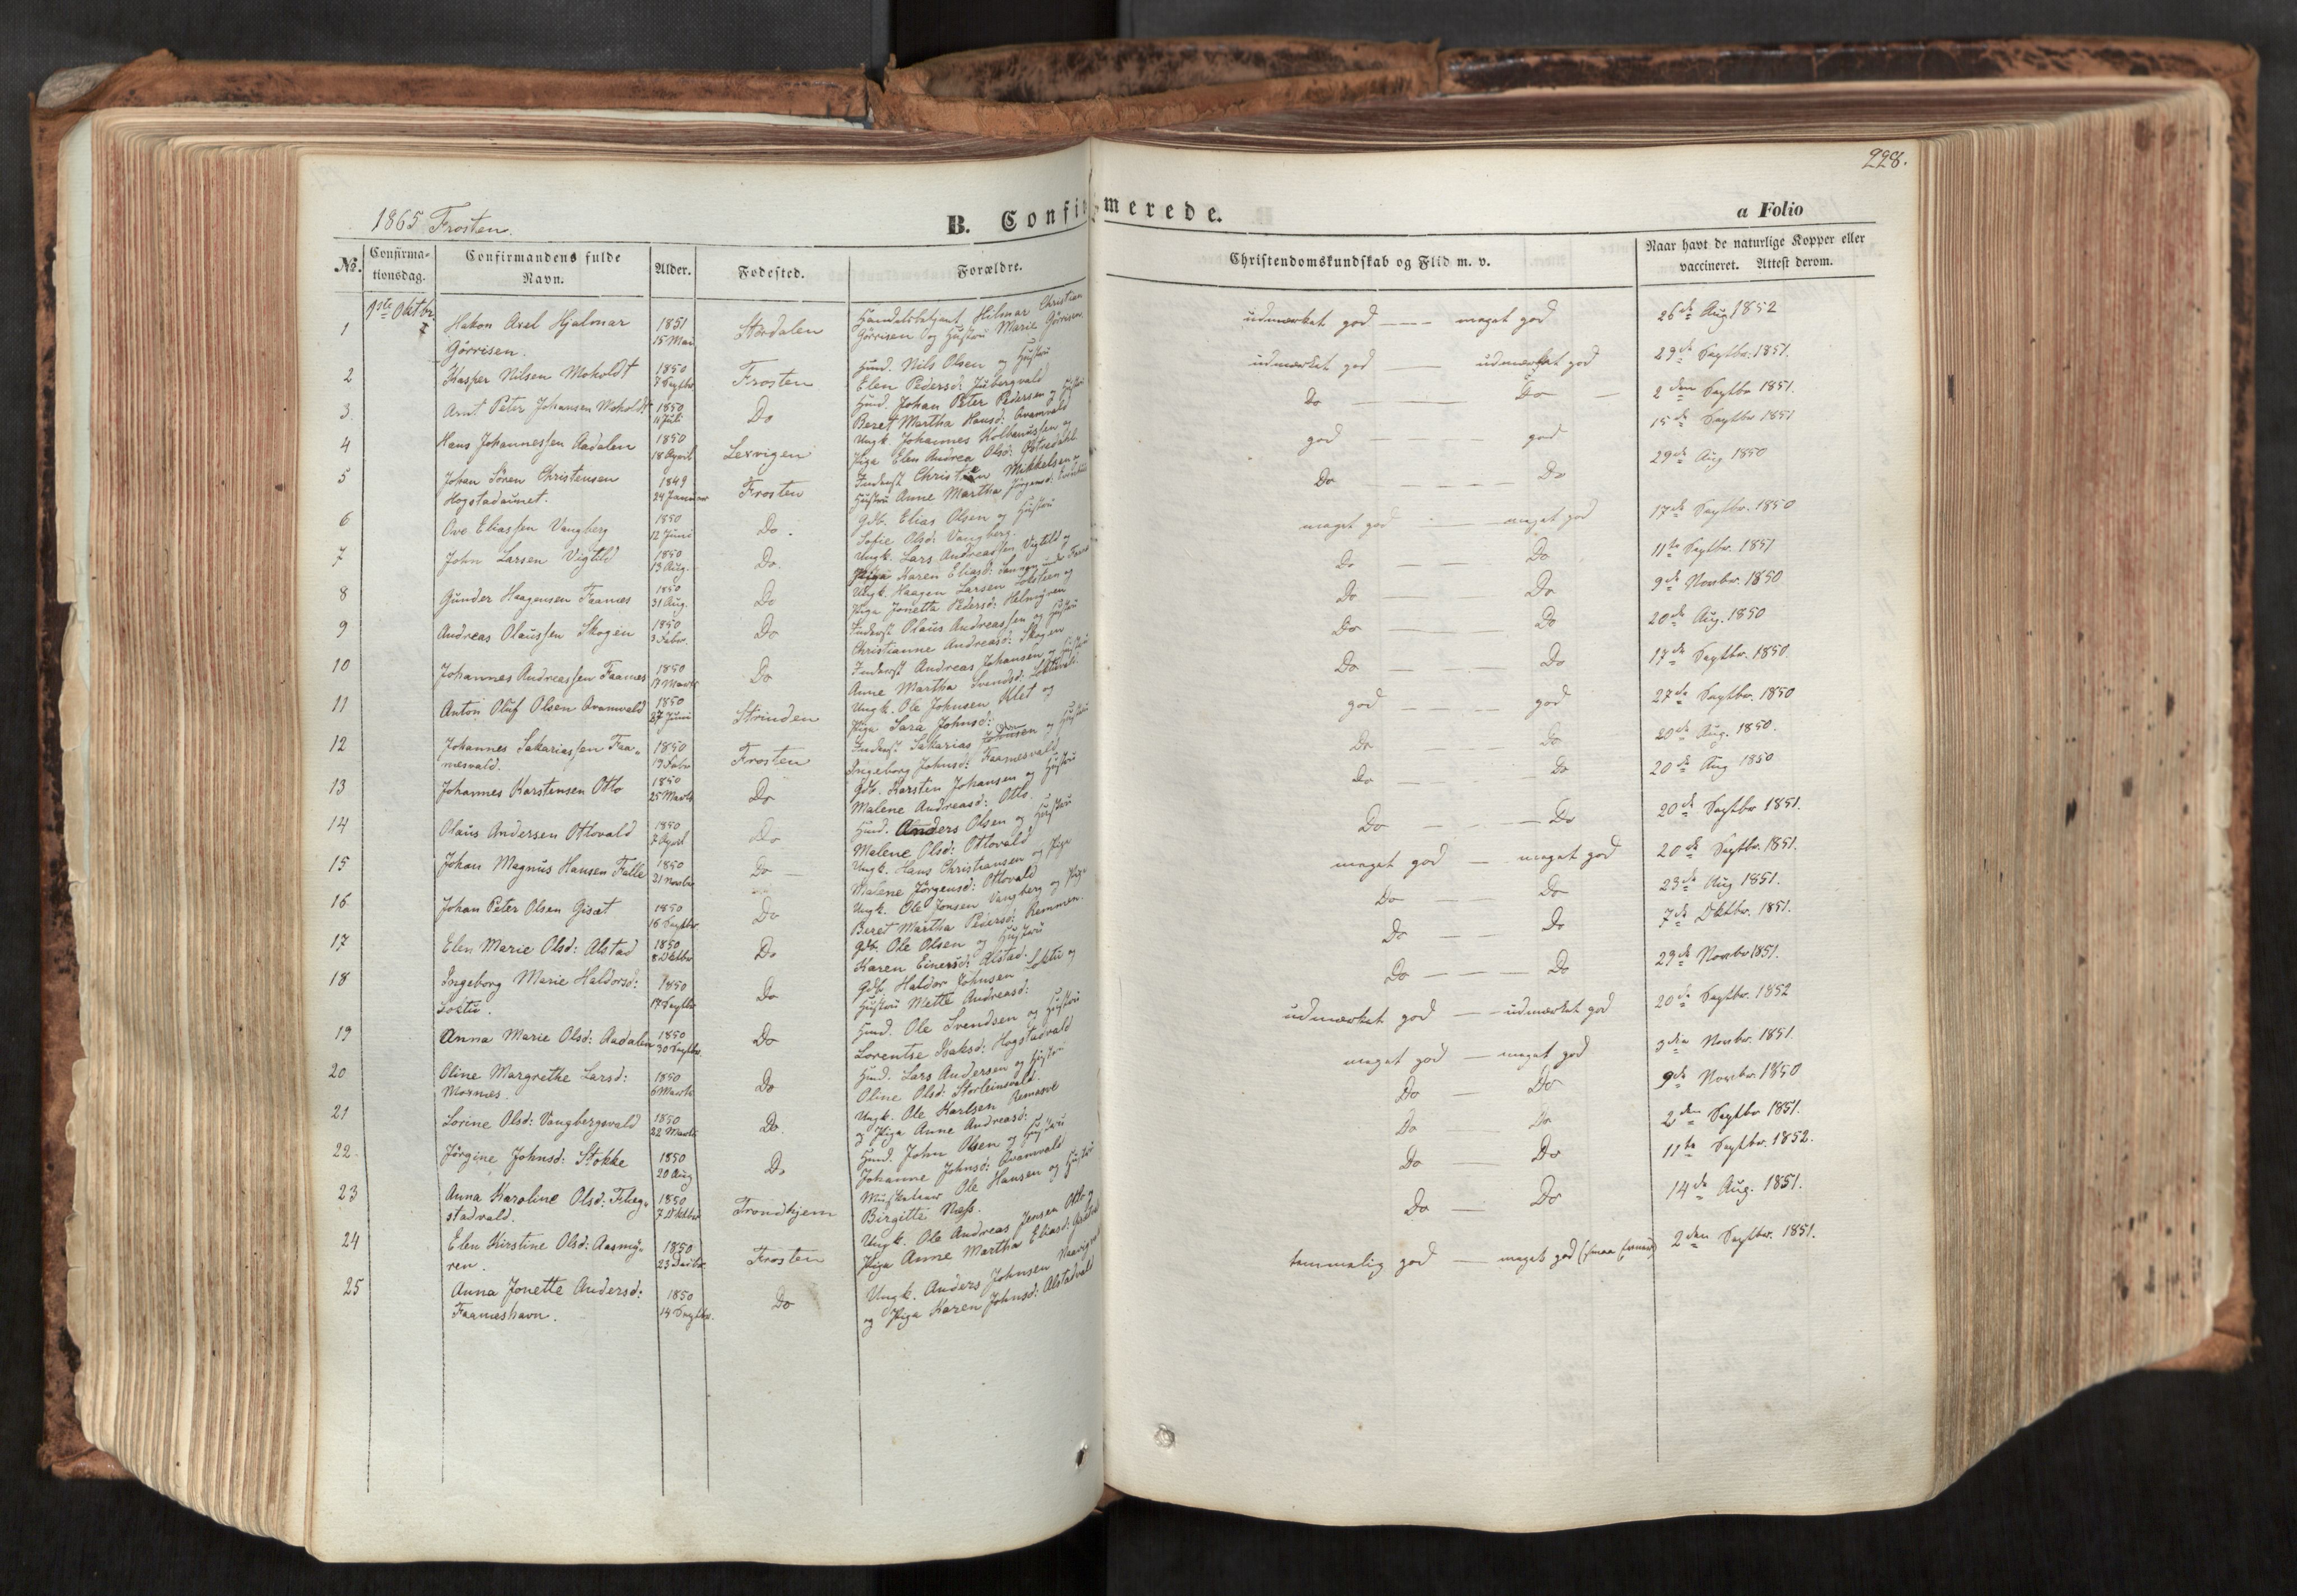 228.
1865 Frosten.
B. Confirmerede.
a Folio
No.
Confirmationsdag.
Confirmandens fulde Navn.
Alder.
Fødested.
Forældre.
Christendomskundskab og Flid m. v.
Naar havt de naturlige Kopper eller vaccineret. Attest derom.
1ste Oktbr.
1 Hakon Axel Hjalmar 1851 Størdalen Handelsbetjent Hilmar Christian udmærket god — meget god 26de Aug 1852
Gørrisen. 15 Mai Gørrisen og Hustru Marie Gørrisen
2 Kasper Nilsen Moholdt 1850 Frosten Husd. Nils Olsen og Hustru udmærket god — udmærket god 29de Septbr. 1851.
7 Septbr Elen Pedersd:
3. Arnt Peter Johansen Moholdt 1850 Do Husd. Johan Peter Pedersen og Hustru Do — Do — 2den Septbr 1851.
11 Juli Beret Martha Hansd: Kvamvald
4 Hans Johannessen Aadalen 1850 Lexvigen Ungk. Johannes Kolbanussen og god — god 15de Septbr 1851
18 April Pige Elen Andrea Olsd:
5 Johan Sören Christensen 1849 Frosten Inderst Christian Mikkelsen og Do — Do 29de Aug 1850
Hogstadaunet. 24 Januar Hustru Anne Martha Jörgensd:
6 Ove Eliassen Vangberg 1850 Do. Gdb. Elias Olsen og Hustru meget god — meget god 17de Septbr. 1850
12 Juni Sofie Olsd: Vangberg.
7 John Larsen Vigtild 1850 Do. Ungk. Lars Andreassen Vigtild og Do — Do 11te Septbr. 1851
13 Aug. Pige Karen Eliasd:
8 Gunder Haagensen Faanes 1850 Do Ungk. Haagen Larsen og Do — Do 9de Novbr. 1850
31 Aug. Pige Jonetta Pedersd: Helmyren
9 Andreas Olaussen Skogen 1850 Do Inderst Olaus Andreassen og Hustru Do — Do 20de Aug. 1850
3 Febr. Christianne Andreasd: Skogen
10 Johannes Andreassen Faanes 1850 Do Inderst Andreas Johansen og Hustru Do — Do 17de Septbr. 1850.
17 Marts Anne Martha Svendsd:
11 Anton Oluf Olsen Kvamvald 1850 Strinden Ungk. Ole Johnsen Klet og god — god 27de Septbr. 1850
27 Juni Pige Sara Johnsd:
12 Johannes Sakariassen Faa- 1850 Frosten Inderst Sakarias og Hustru Do — Do 20de Aug. 1850.
nesvald. 19 Febr Ingeborg Johnsd: Faanesvald
13 Johannes Karstensen Otlo 1850 Do Gdb. Karsten Johansen og Hustru Do — Do 20de Aug 1850
25 Marts Malene Andreasd: Otlo.
14 Olaus Andersen Otlovald 1850 Do Husd. Anders Olsen og Hustru Do — Do 20de Septbr 1851.
7 April Malene Olsd: Otlovald
15 Johan Magnus Hansen Falle 1850 Do — Ungk. Hans Christiansen og Pige meget god — meget god 20de Septbr. 1851.
21 Novbr Malene Jörgensd: Otlovald
16 Johan Peter Olsen 1850 Do Ungk. Ole Jonsen Vangberg og Pige Do — Do 23de Aug 1851.
16 Septbr. Beret Martha Pedersd: Remmen.
17 Elen Marie Olsd: Alstad 1850 Do Gdb. Ole Olsen og Hustru Do — Do 7de Oktbr. 1851.
8 Oktbr Karen Einersd: Alstad.
18 Ingeborg Marie Haldorsd: 1850 Do Gdb. Haldor Johnsen Loktu og Do — Do 29de Novbr 1851.
Loktu. 17 Septbr Hustru Mette Andreasd:
19 Anna Marie Olsd: Aadalen 1850 Do Husd. Ole Svendsen og Hustru udmærket god — udmærket god 20de Septbr. 1852
30 Septbr. Lorentse Isaksd: Hogstadvald
20 Oline Margrethe Larsd: 1850 Do Husd. Lars Andersen og Hustru meget god — meget god 3die Novbr. 1851.
Mornes. 6 Marts Oline Olsd: Storleinsvald.
21 Lorine Olsd: Vangbergsvald 1850 Do. Ungk. Ole Karlsen Do — Do 9de Novbr. 1850
22 Marts og Pige Anne Andreasd:
22 Jörgine Johnsd: Stokke 1850 Do Husd. John Olsen og Hustru Do — Do 2den Septbr 1851.
20 Aug Johanne Johnsd: Kvamvald
23 Anna Karoline Olsd: Flag- 1850 Trondhjem Musketeer Ole Hansen og Hustru Do — Do 11te Septbr. 1852.
stadvald. 7 Oktbr Birgitte Næss.
24 Elen Kirstine Olsd: Aasmy- 1850 Frosten Ungk. Ole Andreas Jensen Otlo og Do — Do 14de Aug. 1851.
ren. 23 Decbr. Pige Anne Martha Eliasd:
25 Anna Jonette Andersd: 1850 Do Ungk. Anders Johnsen temmelig god — meget god 2den Septbr. 1851.
Faaneshavn. 14 Septbr. og Pige Karen Johnsd: Alstadvald